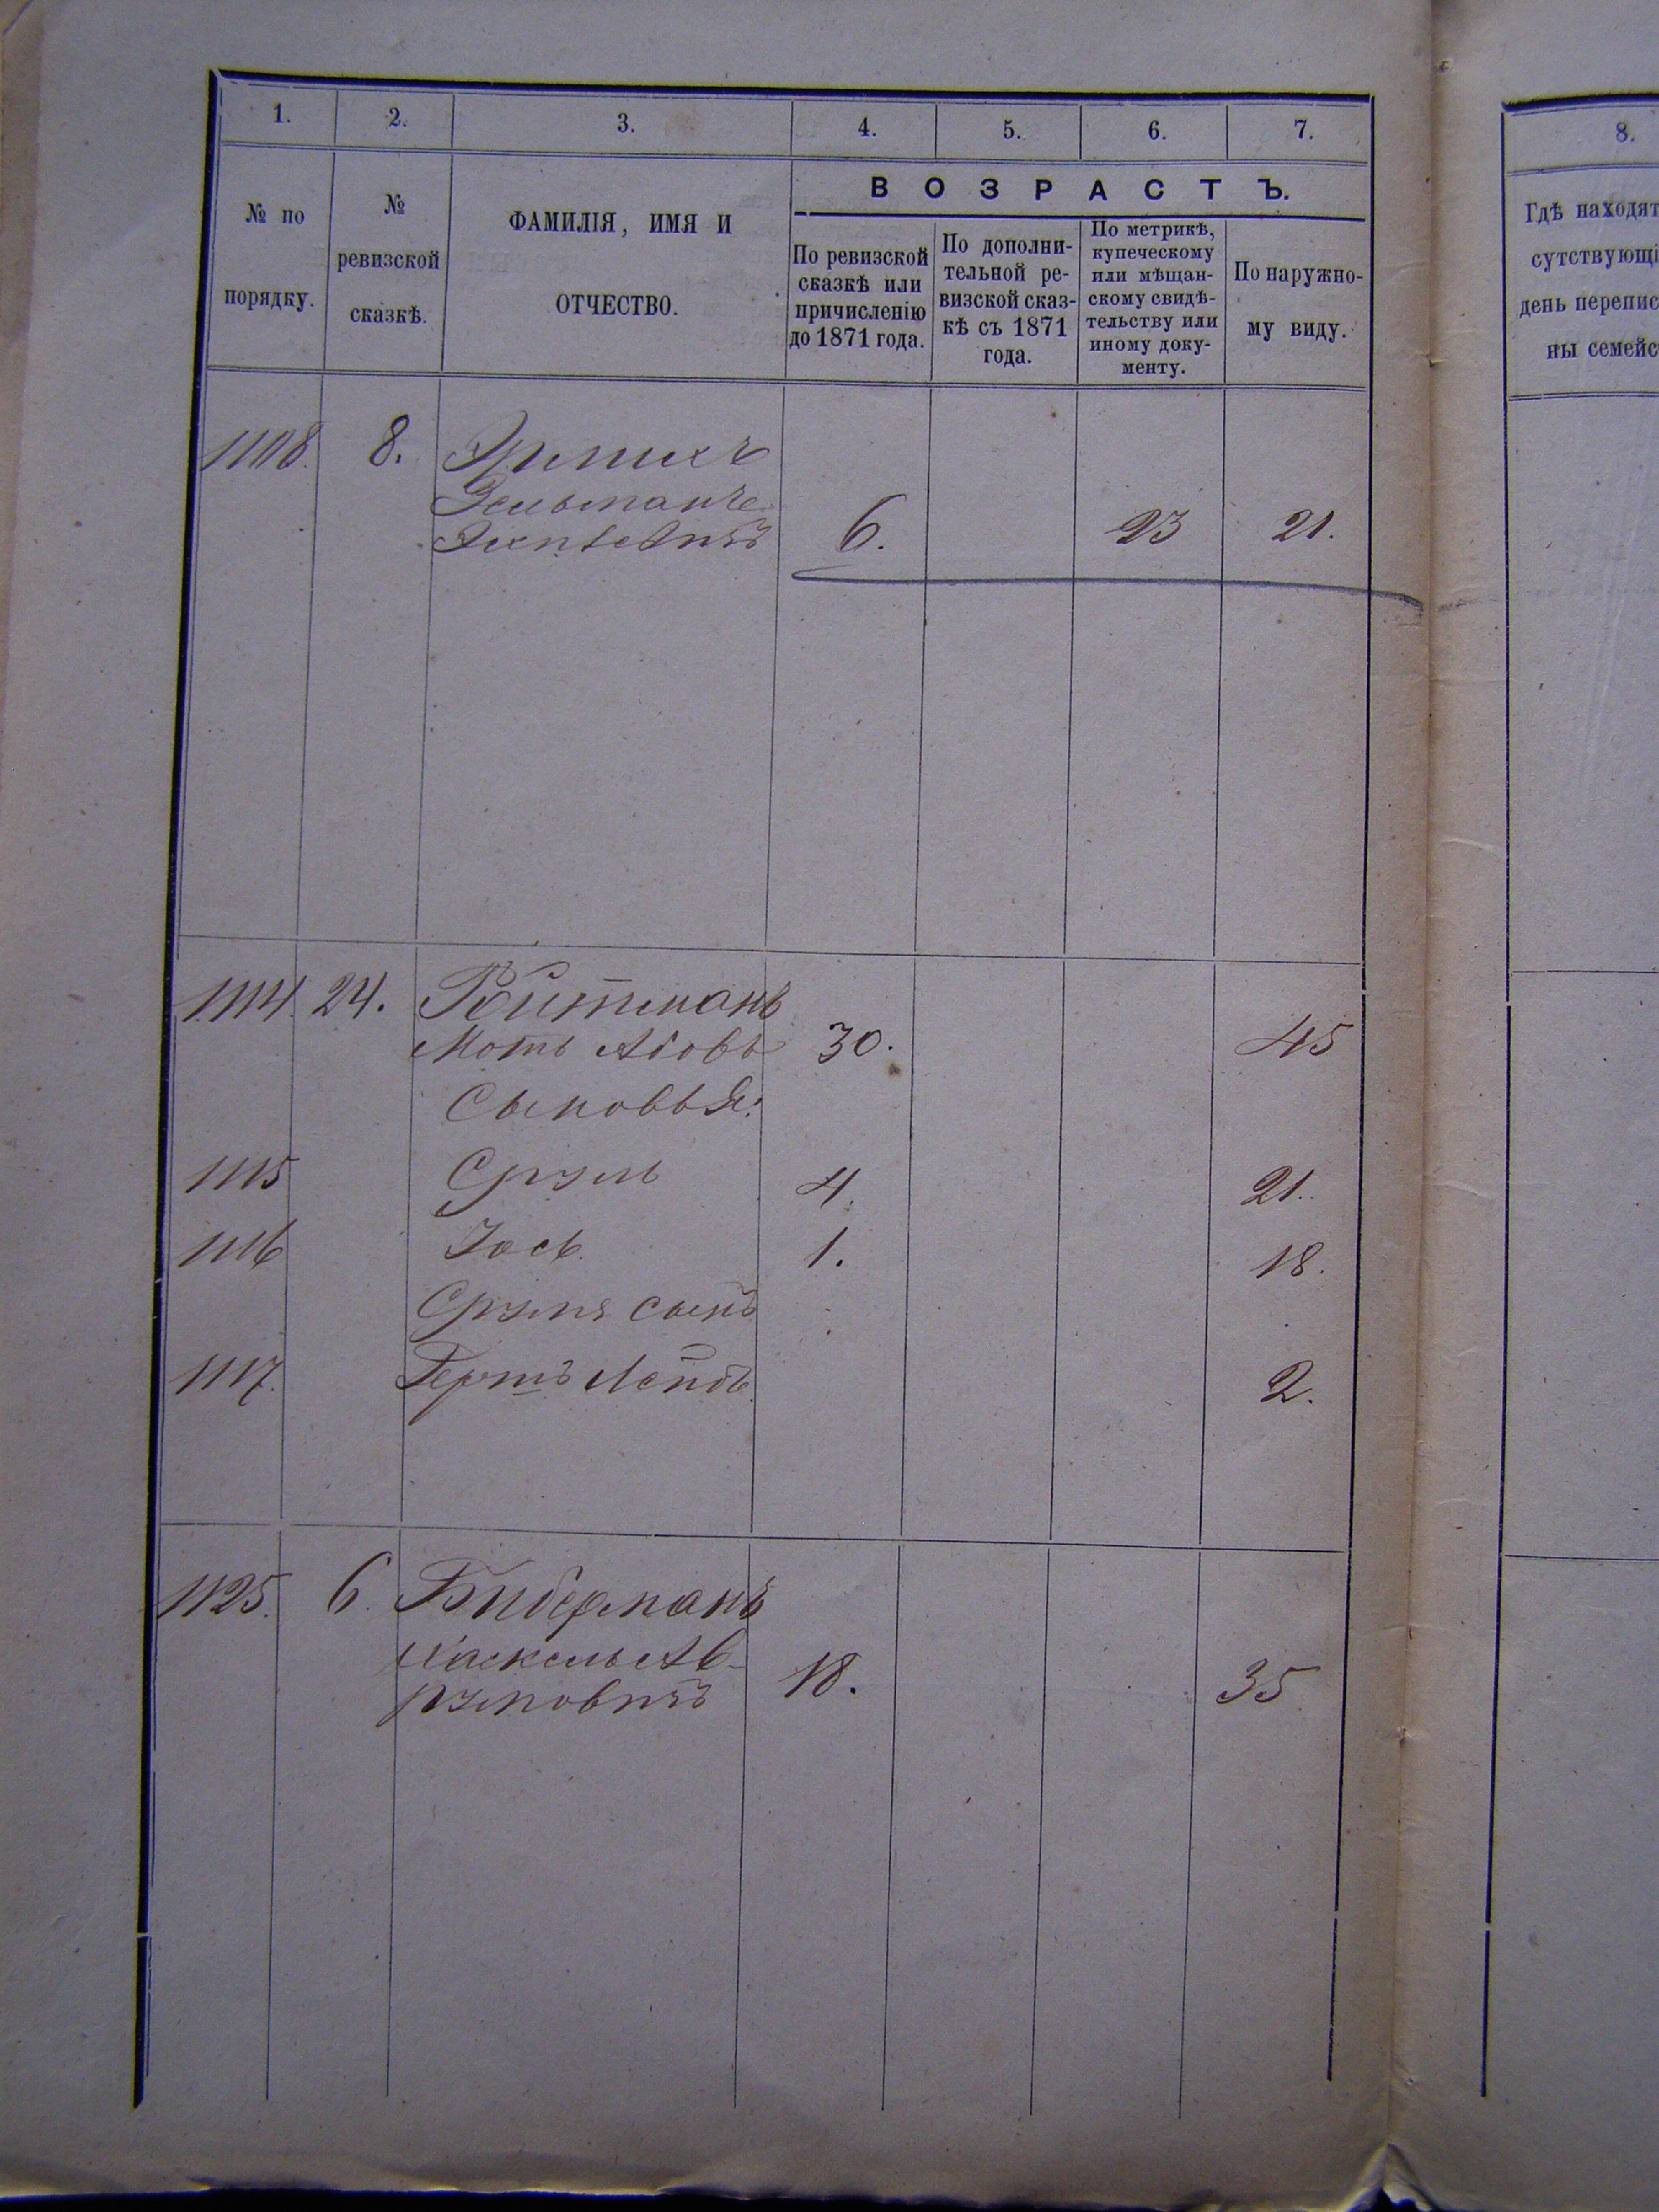 1. 2. 3. 4. 5. 6. 7.
№ по порядку.
№ ревизской сказкѣ.
ФАМИЛІЯ, ИМЯ И ОТЧЕСТВО.
ВОЗРАСТЪ.
По ревизской сказкѣ или причисленію до 1871 года.
По дополни-
тельной ре-
визской сказ-
кѣ съ 1871
года.
По метрикѣ,
купеческому
или мѣщан-
скому свидѣ-
тельству или
иному доку-
менту.
По наружно-
му виду.
1108. 8. Эрлихъ
6. 23 21.
1114. 24. Ройтманъ
Мошь 30. 45
Сыновья:
1115 Сруль 4. 21.
1116 Іось 1. 18.
Сруля сынъ
1117. Гершъ 2.
1125. 6. Биберманъ
Хаскель Ав-
румовичъ 18. 35
8.
Гдѣ находят
сутствующі
день перепис
ны семейс